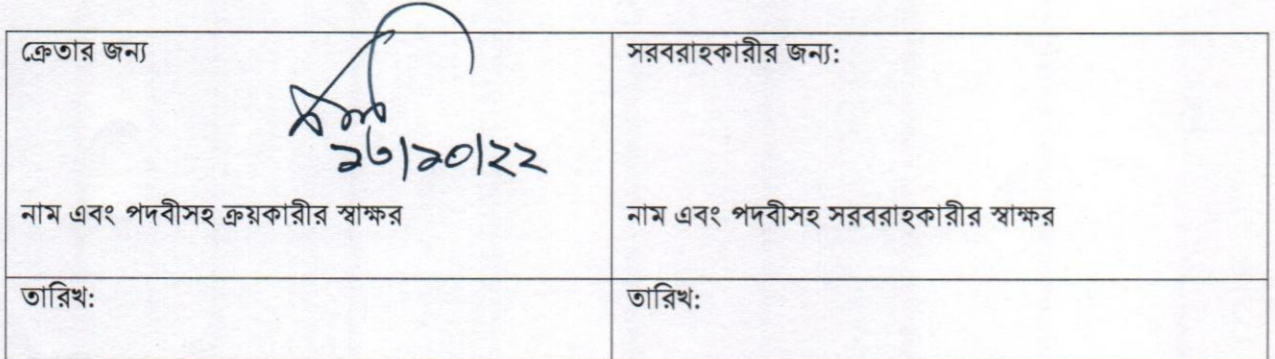 ক্রেতার জন্য
নাম এবং পদবীসহ ক্রয়কারীর স্বাক্ষর
সরবরাহকারীর জন্য:
নাম এবং পদবীসহ সরবরাহকারীর স্বাক্ষর
তারিখ:
তারিখ: